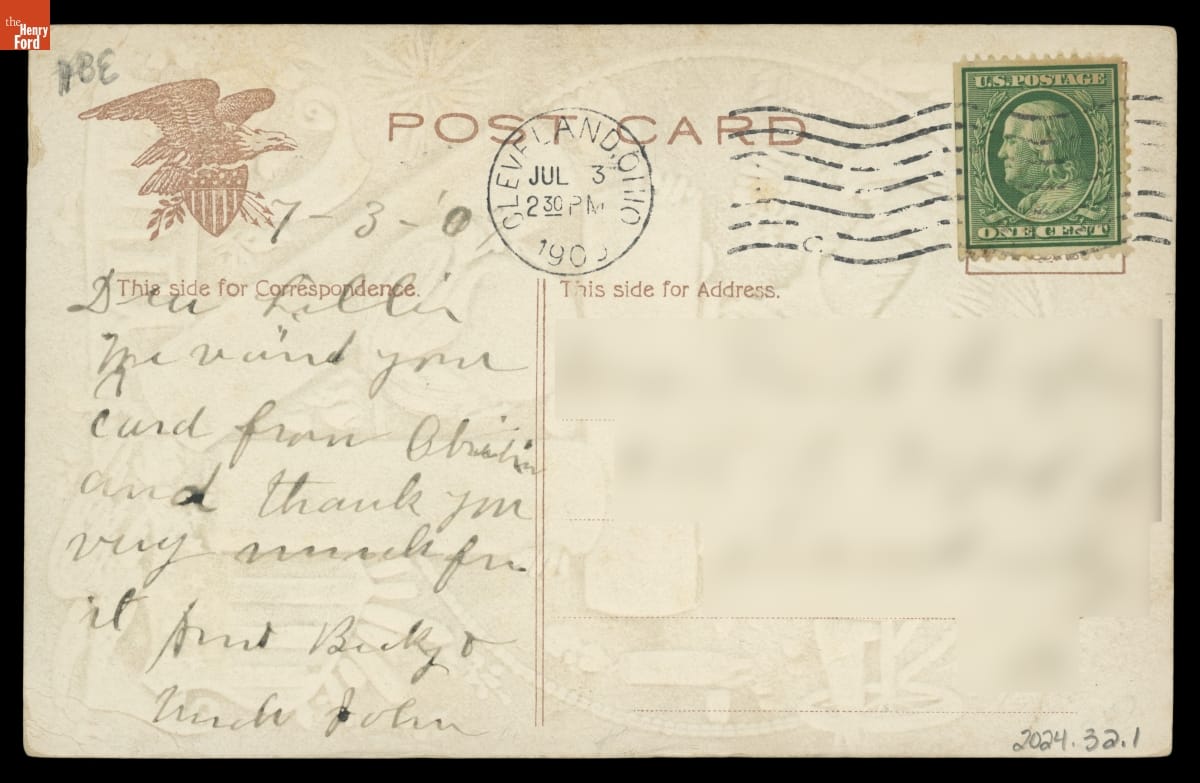 the
Henry
Ford
POST CARD
U.S. POSTAGE
ONE CENT
CLEVELAND, OHIO
JUL 3
2 30 PM
190
C.
7-3-'0
This side for Correspondence.
This side for Address.
Dear Lillie
We your
card from
and thank you
very much for
it
Aunt Becky &
Uncle John
2024.32.1